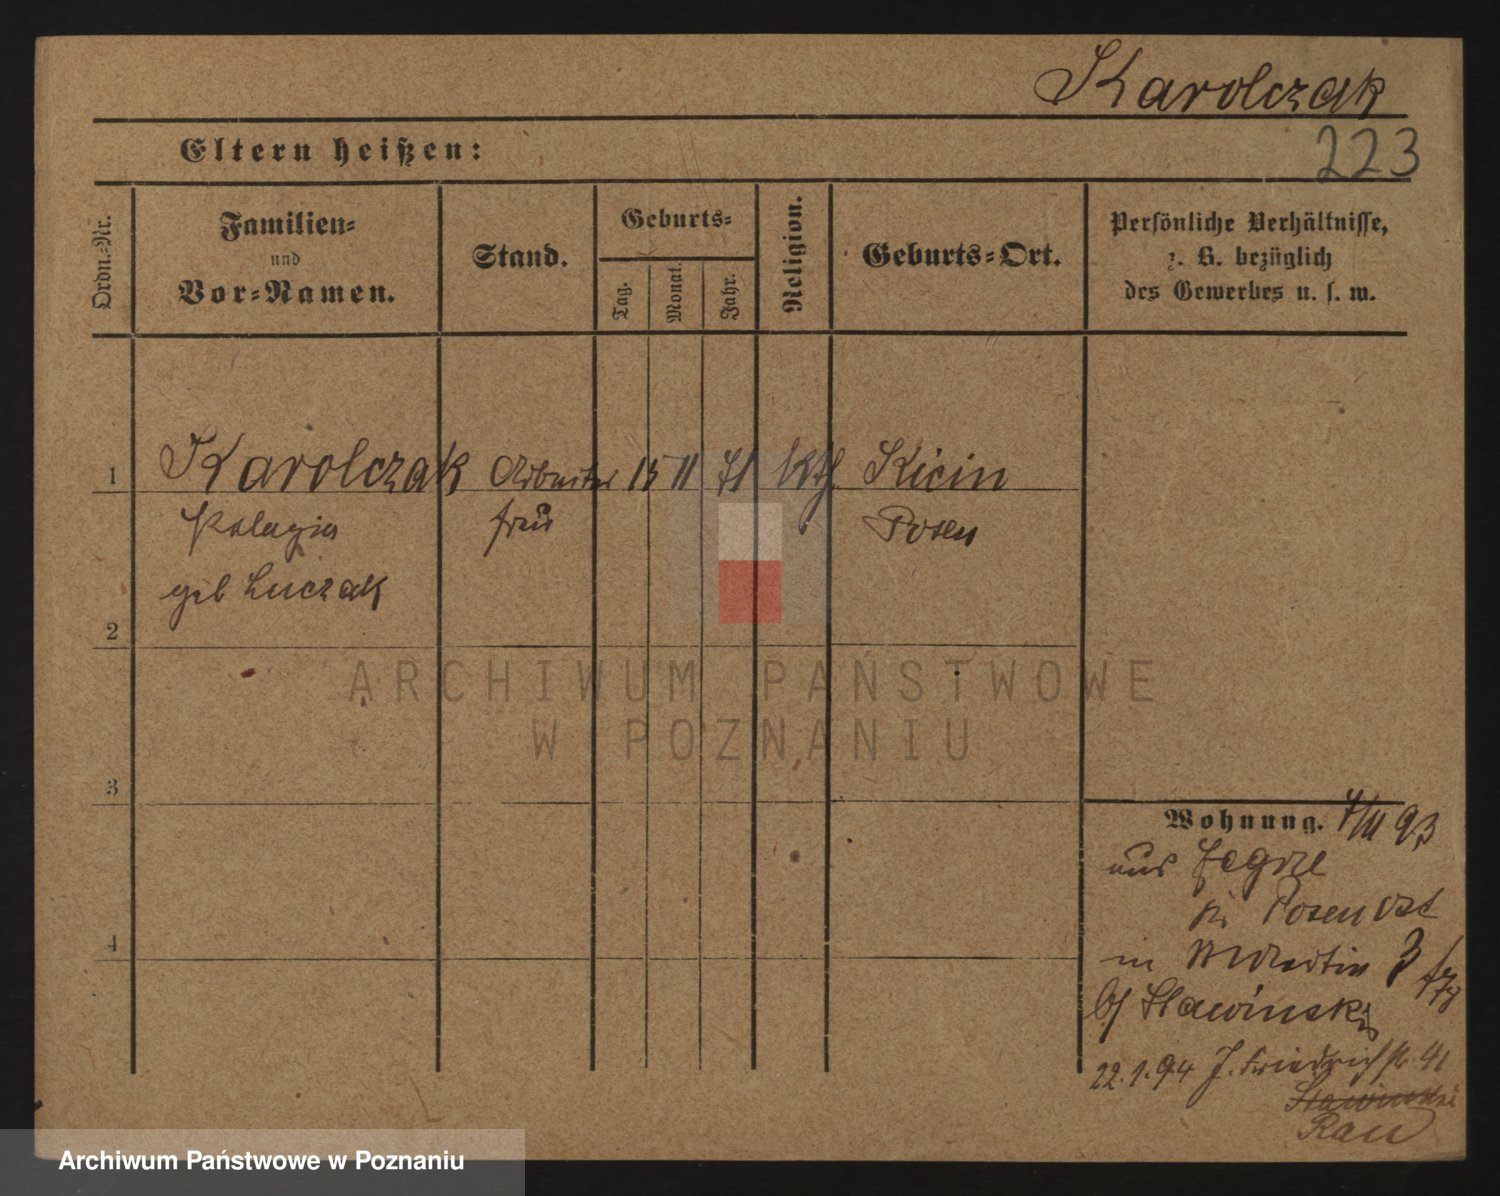 Karolczak
Eltern heißen:
223
Ordn.-Nr.
Familien-
und
Vor-Namen.
Stand.
Geburts-
Tag.
Monat.
Jahr.
Religion.
Geburts-Ort.
Persönliche Verhältnisse,
z. B. bezüglich
des Gewerbes u. s. w.
1 Karolczak Arbeiter 15 11 71 kth. Kicin
Pelagia frau Posen
geb Luczak
2
ARCHIWUM PAŃSTWOWE
W POZNANIU
3
Wohnung. 7/11 93
aus
Posen Ost
in Martin 3
bei Slawinski
4
22.1.94 Friedrichstr. 41
Slawinski
Rau
Archiwum Państwowe w Poznaniu